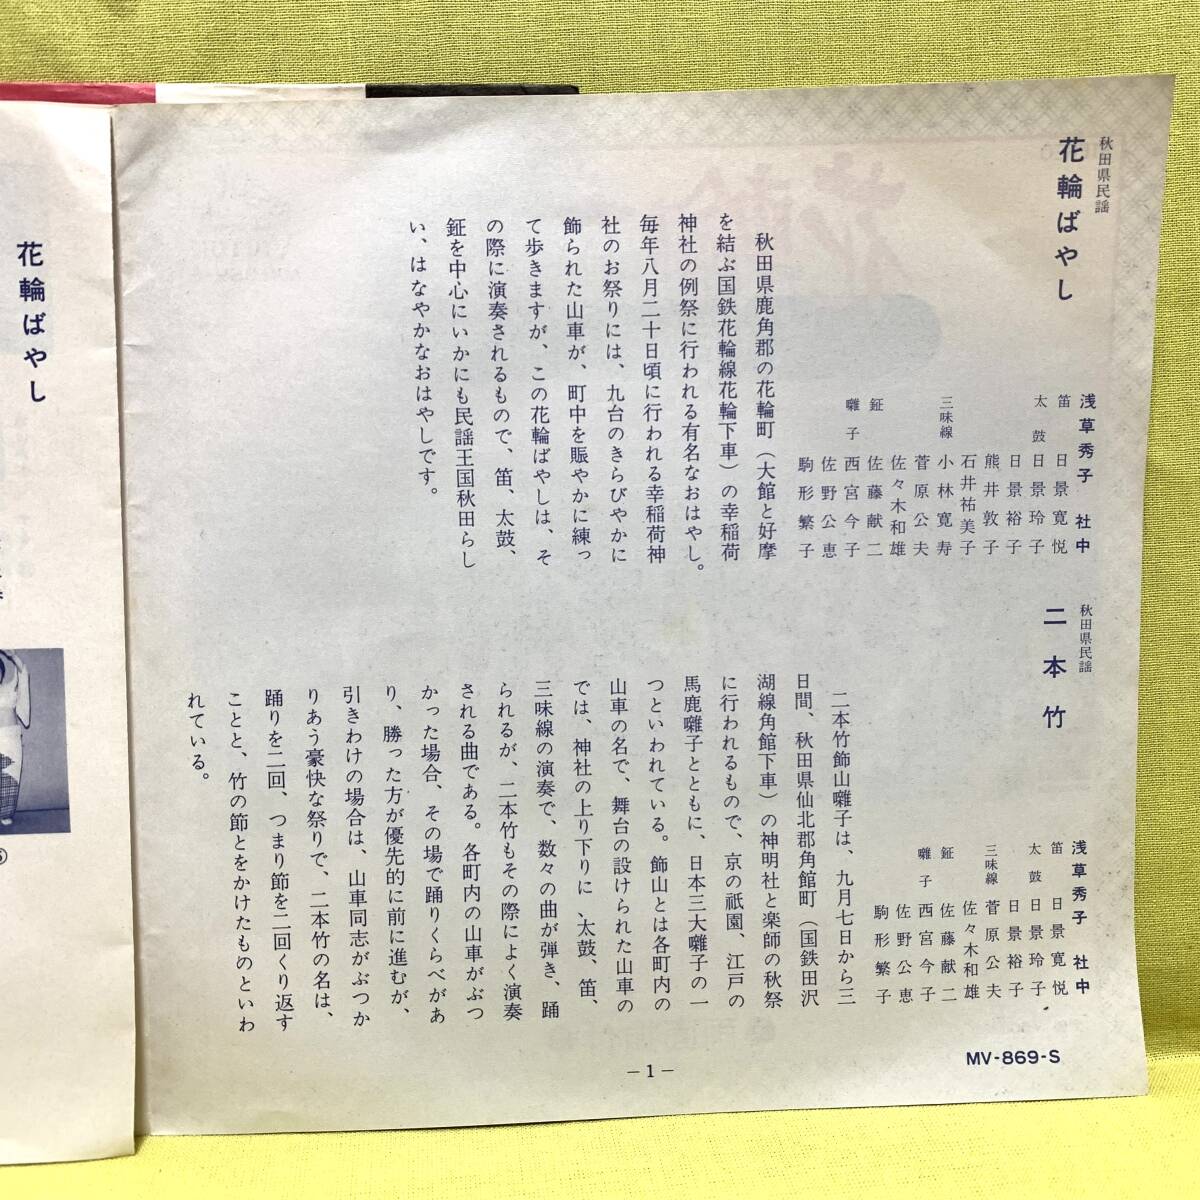 秋田県民謡
花輪ばやし
浅草秀子 社中
笛 日景寛悦
太鼓 日景玲子
日景裕子
熊井敦子
石井祐美子
三味線 小林寛寿
菅原公夫
佐々木和雄
鉦 佐藤献二
囃子 西宮今子
佐野公恵
駒形繁子
秋田県鹿角郡の花輪町（大館と好摩
を結ぶ国鉄花輪線花輪下車）の幸稲荷
神社の例祭に行われる有名なおはやし。
毎年八月二十日頃に行われる幸稲荷神
社のお祭りには、九台のきらびやかに
飾られた山車が、町中を賑やかに練っ
て歩きますが、この花輪ばやしは、そ
の際に演奏されるもので、笛、太鼓、
鉦を中心にいかにも民謡王国秋田らし
い、はなやかなおはやしです。
秋田県民謡
二本竹
浅草秀子 社中
笛 日景寛悦
太鼓 日景玲子
日景裕子
三味線 菅原公夫
佐々木和雄
鉦 佐藤献二
囃子 西宮今子
佐野公恵
駒形繁子
二本竹飾山囃子は、九月七日から三
日間、秋田県仙北郡角館町（国鉄田沢
湖線角館下車）の神明社と楽師の秋祭
に行われるもので、京の祇園、江戸の
馬鹿囃子とともに、日本三大囃子の一
つといわれている。飾山とは各町内の
山車の名で、舞台の設けられた山車の
では、神社の上り下りに、太鼓、笛、
三味線の演奏で、数々の曲が弾き、踊
られるが、二本竹もその際によく演奏
される曲である。各町内の山車がぶつ
かった場合、その場で踊りくらべがあ
り、勝った方が優先的に前に進むが、
引きわけの場合は、山車同志がぶつか
りあう豪快な祭りで、二本竹の名は、
踊りを二回、つまり節を二回くり返す
ことと、竹の節とをかけたものといわ
れている。
MV-869-S
－1－
花輪ばやし